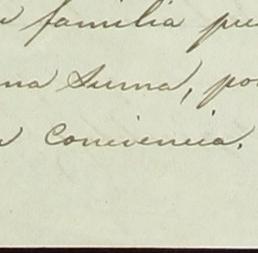 familia pu
na Suma, po
Convivencia.